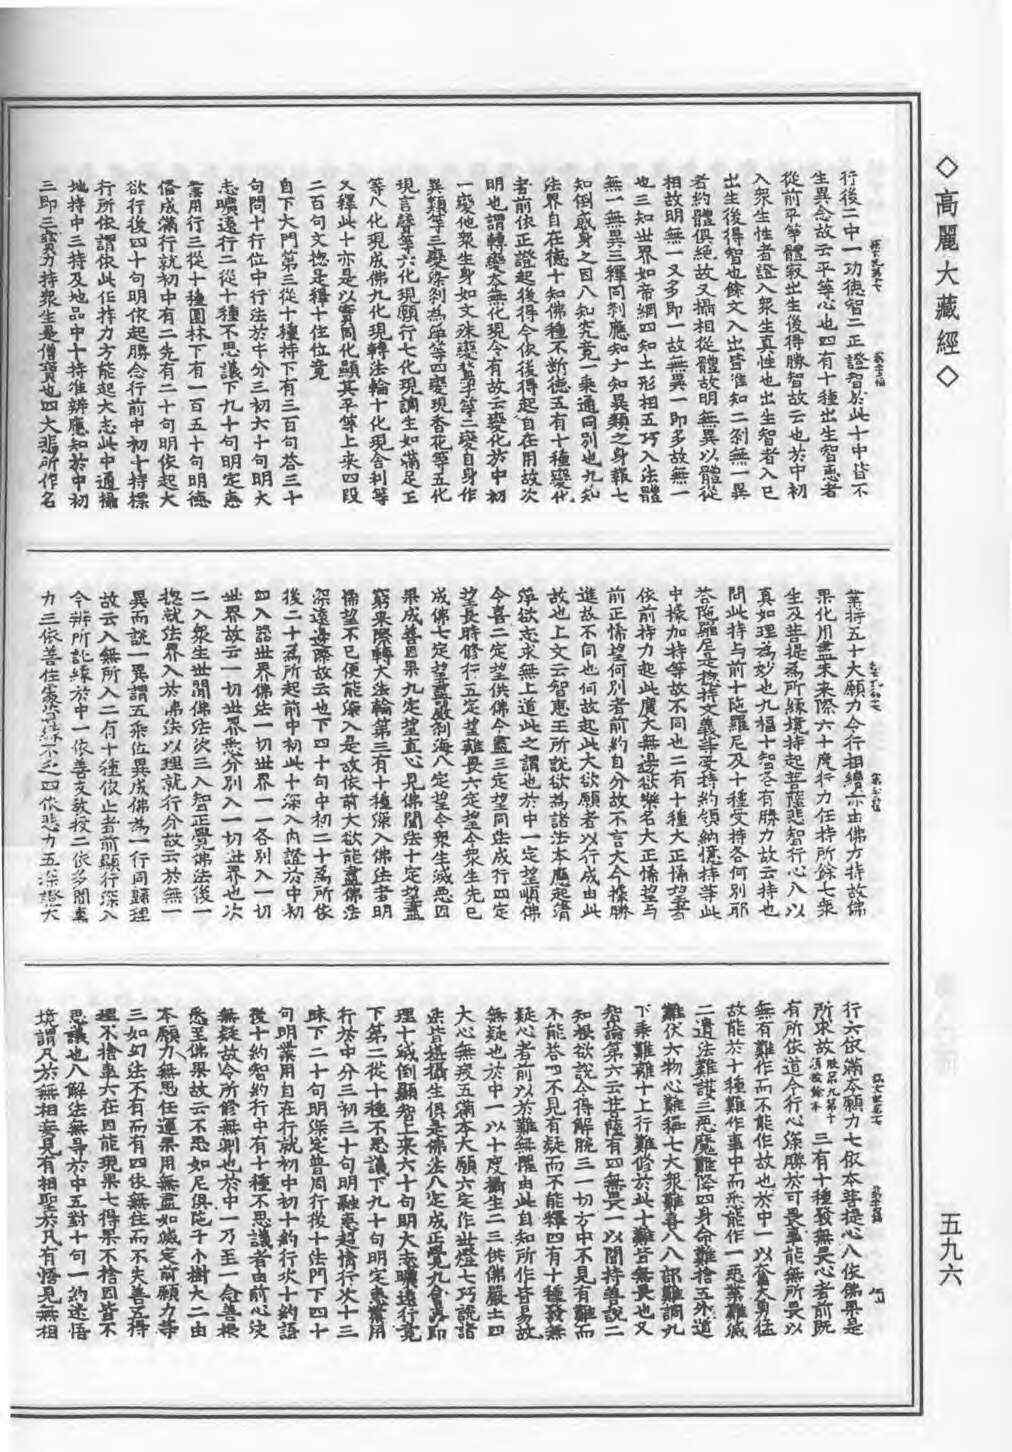 ◇高麗大藏經◇
五九六
行後二中一功德智二正證智於此十中皆不
生異念故云平等心也四有十種出生智惠者
從前平等體寂出生後得勝智故云也於中初
入衆生性者證入衆生直性也出生智者入已
出生後得智也餘文入出皆准知二刹無一異
者約體俱絕故又攝相從體故明無異以體從
相故明無一又多即一故無異一即多故無一
也三知世界如帝網四知土形相五巧入法體
無一無異三釋同刹應知六知異類之身報七
知倒惑身之因八知究竟一乘通同別也九知
法界自在德十知佛種不斷德五有十種變化
者前依正證起後得今依後得起自在用故次
明也謂轉變本無化現今有故云變化於中初
一變他衆生身如文殊變等二變自身作
異類等三變染刹爲淨等四變現香花等五化
現言聲等六化現願行七化現調生如滿足王
等八化現成佛九化現轉法輪十化現舍利等
又釋此十亦是以實同化顯其平等上來四段
二百句文摠是釋十住位竟
自下大門第三從十種持下有三百句荅三十
句問十行位中行法於中分三初六十句明大
志曠遠行二從十種不思議下九十句明定惠
業用行三從十種園林下有一百五十句明德
備成滿行就初中有二先有二十句明依起大
欲行後四十句明依起勝念行前中初十持標
行所依謂依此任持力方能起大志此中通攝
地持中三持及地品中十持准辨應知於中初
三即三寶力持衆生是僧寶也四大悲所作名
業持五十大願力令行相續亦由佛力持故佛
果化用盡未來際六十度行力任持所餘七乘
生及菩提爲所緣境持起菩薩悲智行心八以
真如理爲妙也九福十智各有勝力故云持也
問此持與前十陁羅尼及十種受持各何別耶
荅陁羅尼是摠持文義等受持約領納憶持等此
中據加持等故不同也二有十種大正悕望者
依前持力起此廣大無邊欲樂名大正悕望与
前正悕望何別者前約自分故不言大今據勝
進故不同也何故起此大欲願者以行成由此
故也上文云智惠王所說欲爲諸法本應起清
淨欲志求無上道此之謂也於中一定望順佛
令喜二定望供佛令盡三定望同法成行四定
望長時修行五定望離畏六定望令衆生先已
成佛七定望盡嚴刹海八定望令衆生滅惡因
果成善因果九定望直心見佛聞法十定望盡
窮未來際轉大法輪第三有十種深入佛法者明
悕望不已便能深入是故依前大欲能盡佛法
深遠邊際故云也下四十句中初二十爲所依
後二十爲所起前中初此十深入內證於中初
四入器世界佛法一切世界一一各別入一切
世界故云一切世界悉分別入一切世界也次
二入衆生世間佛法次三入智正覺佛法後一
摠就法界入於佛法以理就行分故云於無一
異而說一異謂五乘位異成佛爲一行同歸理
故云入無所入二有十種依止者前顯行深入
今辨所託緣於中一依善友敎授二依多聞
力三依善住四依悲力五深證大
行六依滿本願力七依本菩提心八依佛果是
所求故三有十種發無畏心者前既
有所依道今行心深勝於可畏事能無所畏以
無有難作而不能作故也於中一以大勇猛
故能於十種難作事中而悉能作一惡業難滅
二遺法難護三惡魔難降四身命難捨五外道
難伏六物心難稱七大衆難喜八八部難調九
下乘難離十上行難修於此十難皆無畏也又
智論第六云菩薩有四無畏一以聞持善說二
知根欲說令得解脫三一切方中不見有難而
不能荅四不見有疑而不能釋四有十種發無
疑心者前以於難無懼由此自知所作皆易故
無疑也於中一以十度攝生二三供佛嚴土四
大心無疲五滿本大願六定作世燈七巧說諸
法皆攝生俱是佛法八定成正覺九會眞即
理十滅倒顯智上來六十句明大志曠遠行竟
下第二從十種不思議下九十句明定惠業用
行於中分三初三十句明融惠超情行次十三
昧下二十句明深定普周行後十法門下四十
句明業用自在行就初中初十約行次十約語
後十約智約行中有十種不思議者由前心決
無疑故令所修無測也於中一乃至一念善根
悉至佛果故云不思如尼俱陁子小樹大二由
本願力無思任運果用無盡如滅定前願力等
三如幻法不有而有四依無住而不失善五得
理不捨事六在因能現果七得果不捨因皆不
思議也八解法無㝵於中五對十句一約迷悟
境謂凡於無相妄見有相聖於凡有悟見無相